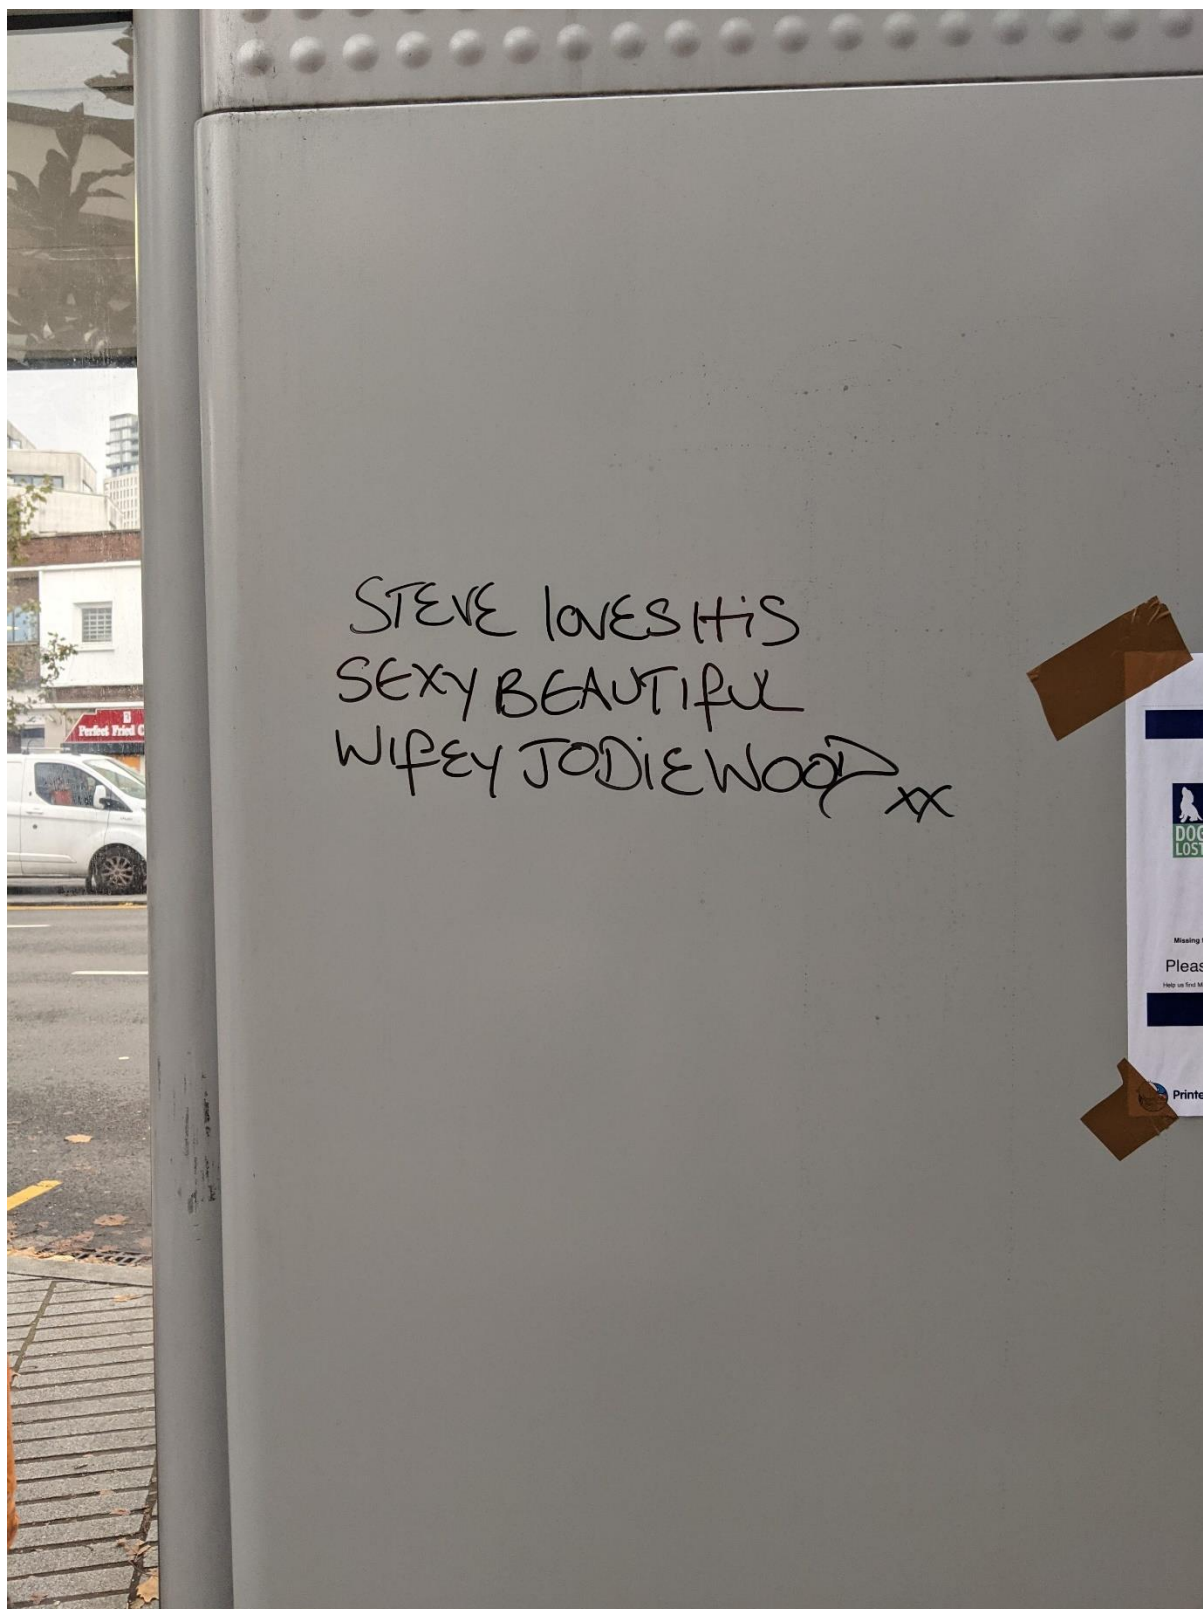 STEVE lOVES HiS
SEXY BEAUTiful
WifEY JODiE WOOD xx
Perfect Fried
DOG
LOST
Missing
Pleas
Help us find M
Printe